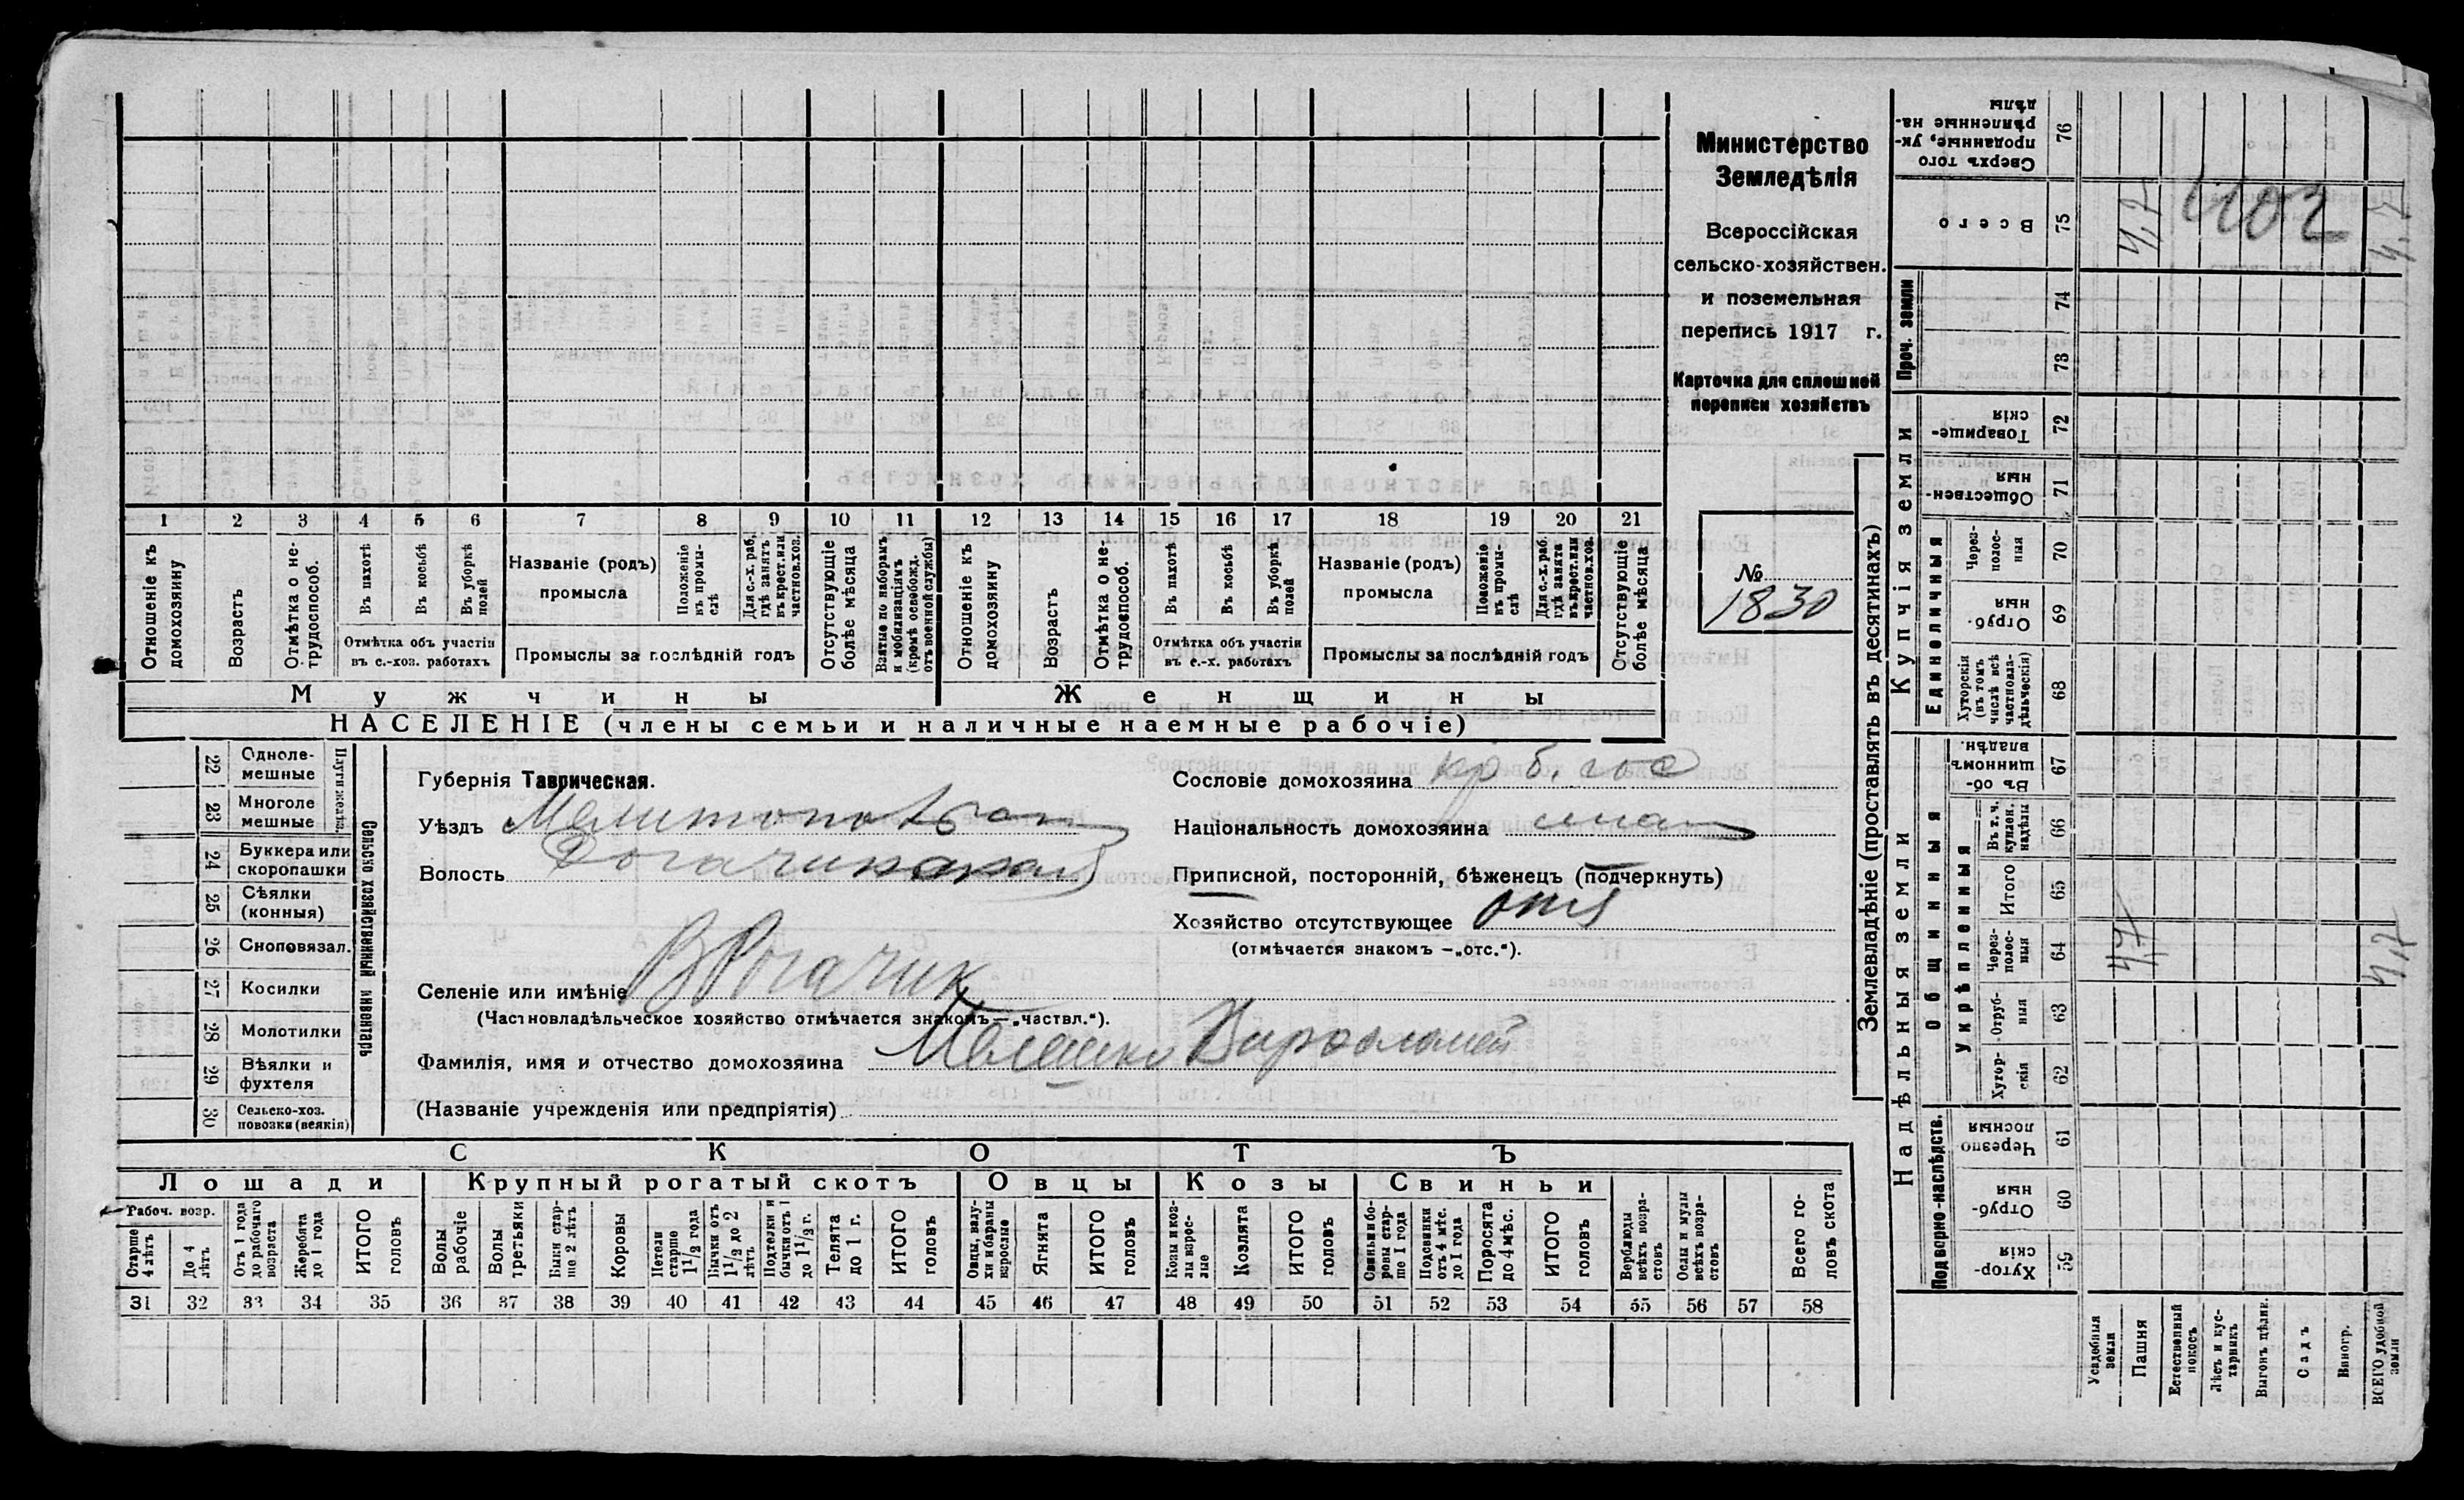 Министерство
Земледѣлія
Всероссійская
сельско-хозяйствен.
и поземельная
перепись 1917 г.
Карточка для сплошной
переписи хозяйствъ
№
1830
1 2 3 4 5 6 7 8 9 10 11 12 13 14 15 16 17 18 19 20 21
Отношеніе къ домохозяину
Возрастъ
Отмѣтка о не-трудоспособ.
Въ пахотѣ
Въ косьбѣ
Въ уборкѣ полей
Отмѣтка объ участіи въ с.-хоз. работахъ
Названіе (родъ) промысла
Положеніе въ промы-слѣ
Для с.-х. раб, гдѣ занятъ въ крест. или частнов. хоз.
Промыслы за послѣдній годъ
Отсутствующіе болѣе мѣсяца
Взятые по наборамъ и мобилизаціямъ (кромѣ освобожд. отъ военной службы)
Отношеніе къ домохозяину
Возрастъ
Отмѣтка о не-трудоспособ.
Въ пахотѣ
Въ косьбѣ
Въ уборкѣ полей
Отмѣтка объ участіи въ с.-х. работахъ
Названіе (родъ) промысла
Положеніе въ промы-слѣ
Для с.-х. раб. гдѣ занята въ крест. или частнов. хоз.
Промыслы за послѣдній годъ
Отсутствующіе болѣе мѣсяца
Мужчины
Женщины
НАСЕЛЕНІЕ (члены семьи и наличные наемные рабочіе)
22 Одноле-мешные
23 Многоле мешные
Плуги желѣз.
24 Буккера или скоропашки
25 Сѣялки (конныя)
26 Сноповязал.
27 Косилки
28 Молотилки
29 Вѣялки и фухтеля
30 Сельско-хоз. повозки (всякія)
Сельско хозяйственный инвентарь
Губернія Таврическая.
Уѣздъ Мелитопольск
Волость Рогачикская
Селеніе или имѣніе В Рогачик
(Частновладѣльческое хозяйство отмѣчается знакомъ — „частвл.“).
Фамилія, имя и отчество домохозяина Мелешко Варфоломей
(Названіе учрежденія или предпріятія)
Сословіе домохозяина кр б. гос
Національность домохозяина
Приписной, посторонній, бѣженецъ (подчеркнуть)
Хозяйство отсутствующее отс
(отмѣчается знакомъ — „отс.“).
СКОТЪ
Лошади
Крупный рогатый скотъ
Овцы
Козы
Свиньи
Рабоч. возр.
Старше 4 лѣтъ
До 4 лѣтъ
Отъ 1 года до рабочаго возраста
Жеребята до 1 года
ИТОГО головъ
Волы рабочіе
Волы третьяки
Быки стар-ше 2 лѣтъ
Коровы
Нетели старше 1 1/2 года
Бычки отъ 1 1/2 до 2 лѣтъ
Подтелки и бычки отъ 1 до 1 1/2 г.
Телята до 1 г.
ИТОГО головъ
Овцы, валу-хи и бараны взрослые
Ягнята
ИТОГО головъ
Козы и коз-лы взрос-лые
Козлята
ИТОГО головъ
Свиньи и бо-ровы стар-ше 1 года
Подсвинки отъ 4 мѣс. до 1 года
Поросята до 4 мѣс.
ИТОГО головъ
Верблюды всѣхъ возра-стовъ
Ослы и мулы всѣхъ возра-стовъ
Всего го-ловъ скота
31 32 33 34 35 36 37 38 39 40 41 42 43 44 45 46 47 48 49 50 51 52 53 54 55 56 57 58
Землевладѣніе (проставлять въ десятинахъ)
Сверхъ того проданные, ук-рѣпленные на-дѣлы 76
Всего 75 4,7 1102 4,7
Проч. земли 74 73
Купчія земли
Товарище-скія 72
Обществен-ныя 71
Единоличныя
Через-полос-ныя 70
Отруб-ныя 69
Хуторскія (въ томъ числѣ всѣ частновла-дѣльческія) 68
Надѣльныя земли
Общинныя
Въ об-щинномъ владѣн. 67
Укрѣпленныя
Въ т. ч. куплен. надѣлы 66
Итого 65
Через-полос-ныя 64 4,7 4,7
Отруб-ныя 63
Хутор-скія 62
Подворно-наслѣдств.
Черезпо лосныя 61
Отруб-ныя 60
Хутор-скія 59
Усадебныя земли
Пашня
Естественный покосъ
Лѣсъ и кус-тарникъ
Выгонъ цѣлин.
Садъ
Виногр.
ВСЕГО удобной земли